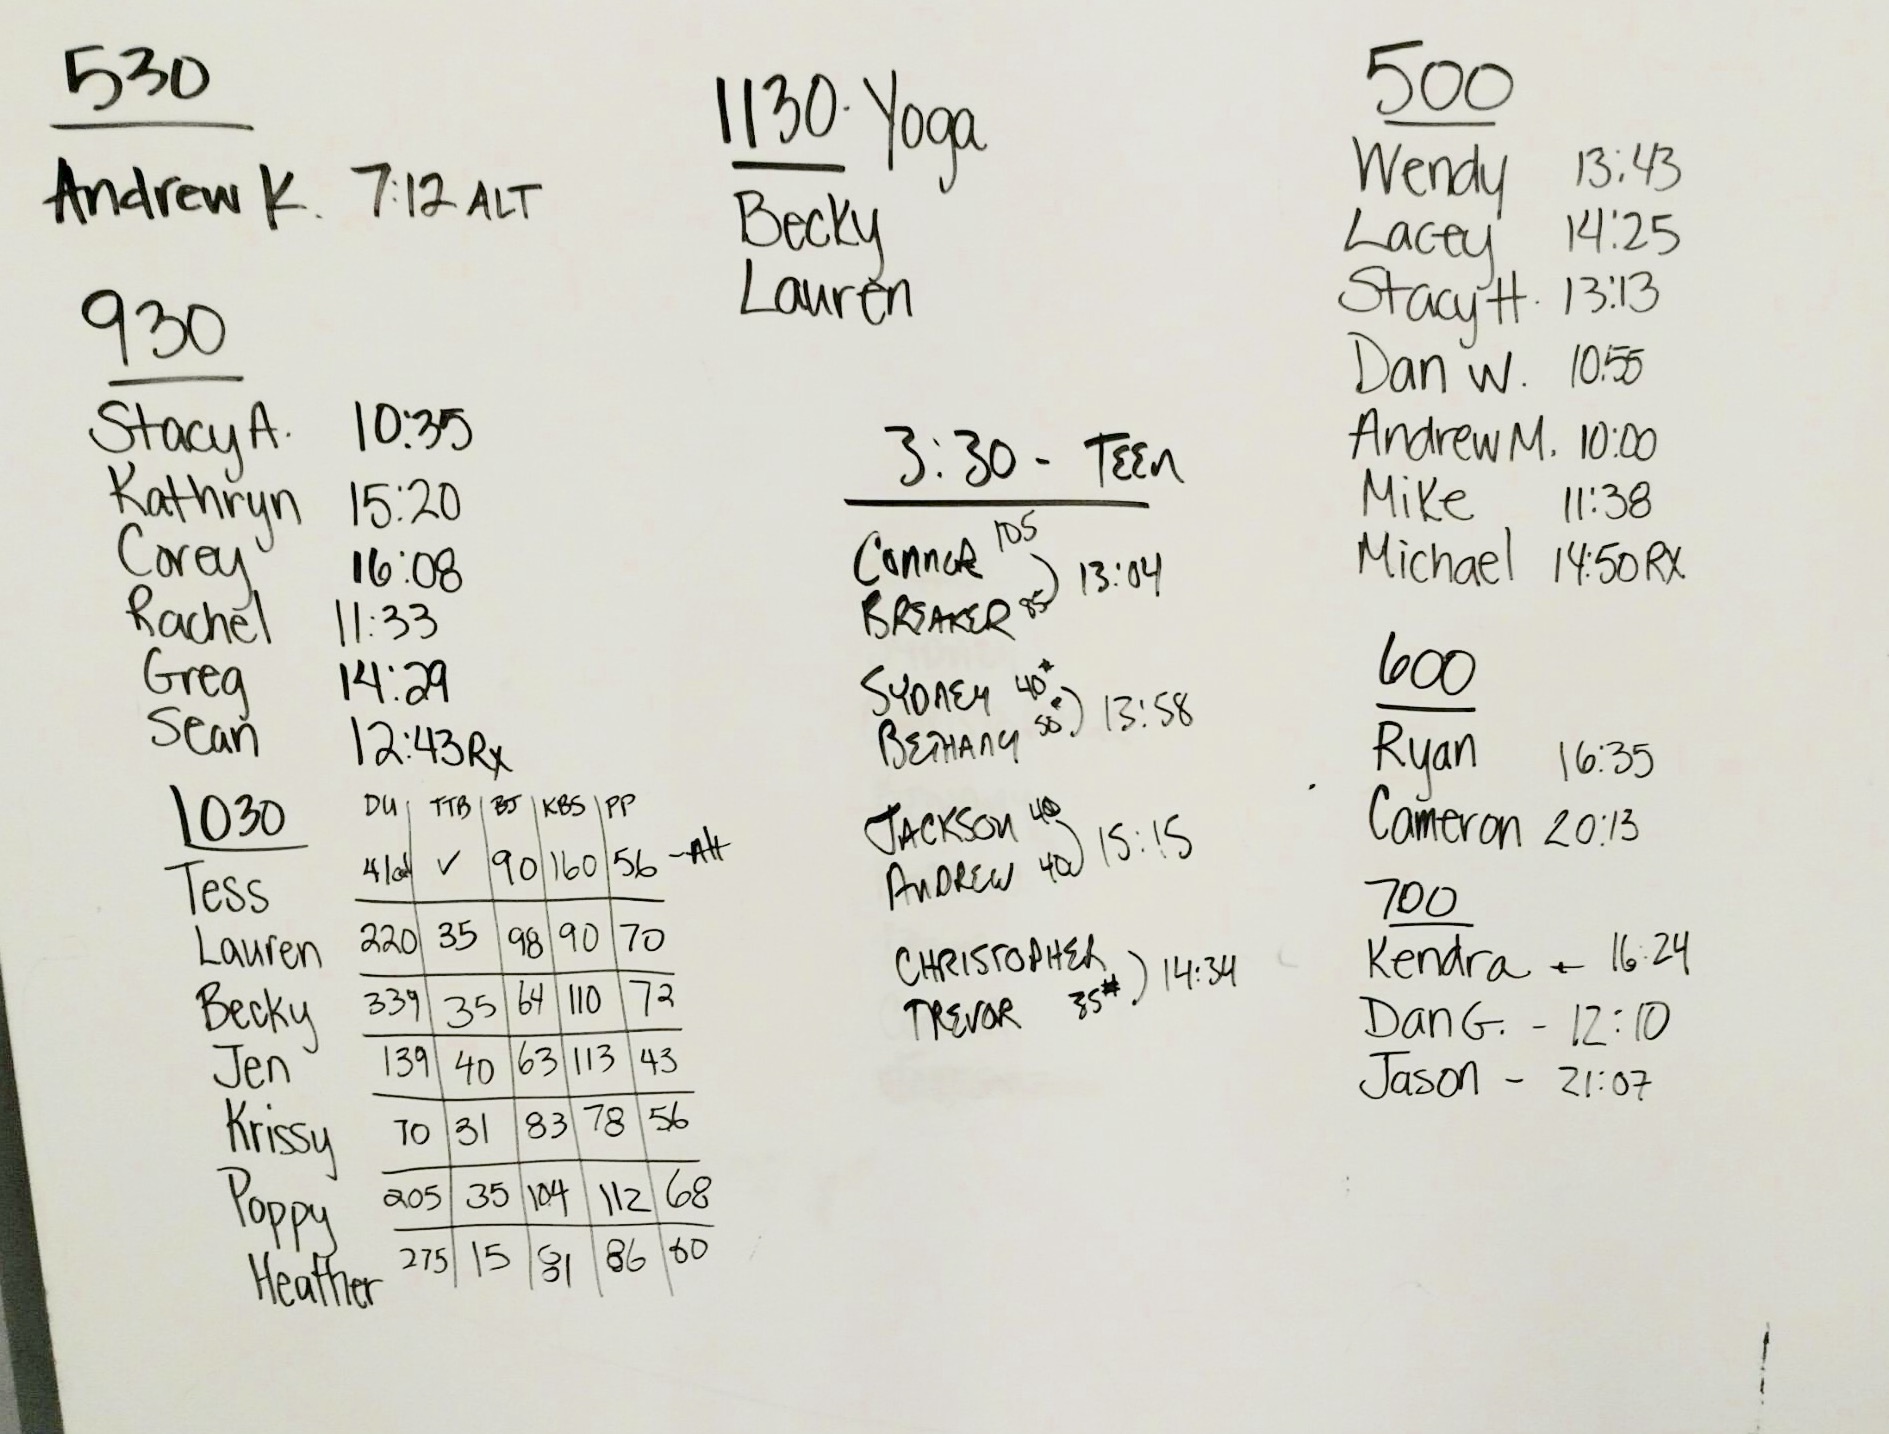 530
Andrew K. 7:12 ALT
930
Stacy A. 10:35
Kathryn 15:20
Corey 16:08
Rachel 11:33
Greg 14:29
Sean 12:43 Rx
1030 DU TTB BJ KBS PP
Tess ✓ 90 160 56 - Alt
Lauren 220 35 98 90 70
Becky 339 35 64 110 72
Jen 139 40 63 113 43
Krissy 70 31 83 78 56
Poppy 205 35 104 112 68
Heather 275 15 86
1130 - Yoga
Becky
Lauren
3:30 - TEEN
Connor 105
BREAKER 85 ) 13:04
SYDNEY 40#
BETHANY ) 13:58
JACKSON 40
ANDREW 40 ) 15:15
CHRISTOPHER
TREVOR 35# ) 14:34
500
Wendy 13:43
Lacey 14:25
Stacy H. 13:13
Dan W. 10:55
Andrew M. 10:00
Mike 11:38
Michael 14:50 RX
600
Ryan 16:35
Cameron 20:13
700
Kendra - 16:24
Dan G. - 12:10
Jason - 21:07